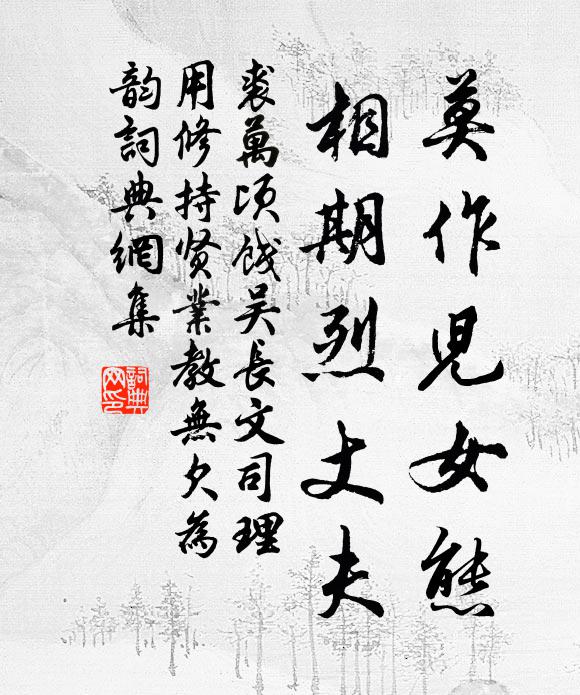 莫作児女態
相期烈丈夫
裘萬頃餞吴長文司理
用修持贤業教無欠為
韵詞典網集
詞典
网印